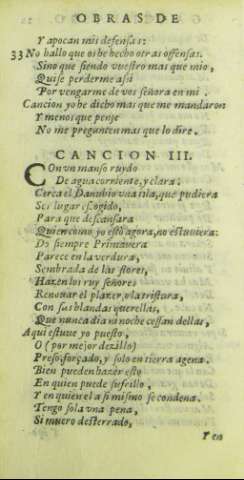 OBRAS DE
Y apocan mis defensas:
33 No hallo que os he hecho otras offensas.
Sino que siendo vuestro mas que mio,
Quise perderme asi
Por vengarme de vos señora en mi.
Cancion yo he dicho mas que me mandaron
Y menos que pense
No me pregunten mas que lo dire.
CANCION III.
Con vn manso ruydo
De agua corriente, y clara.
Cerca el Danubio vna isla, que pudiera
Ser lugar escogido,
Para que descansara
Quien como yo estó agora, no estuuiera:
Do siempre Primauera
Parece en la verdura,
Sembrada de las flores,
Hazen los ruy señores
Renouar el plazer, o la tristura,
Con sus blandas querellas,
Que nunca dia ni noche cessan dellas,
Aqui estuue yo puesto,
O (por mejor dezillo)
Preso, forçado, y solo en tierra agena.
Bien pueden hazer esto
En quien puede sufrillo,
Y en quien el a si mismo se condena.
Tengo sola vna pena,
Si muero desterrado,
Y en